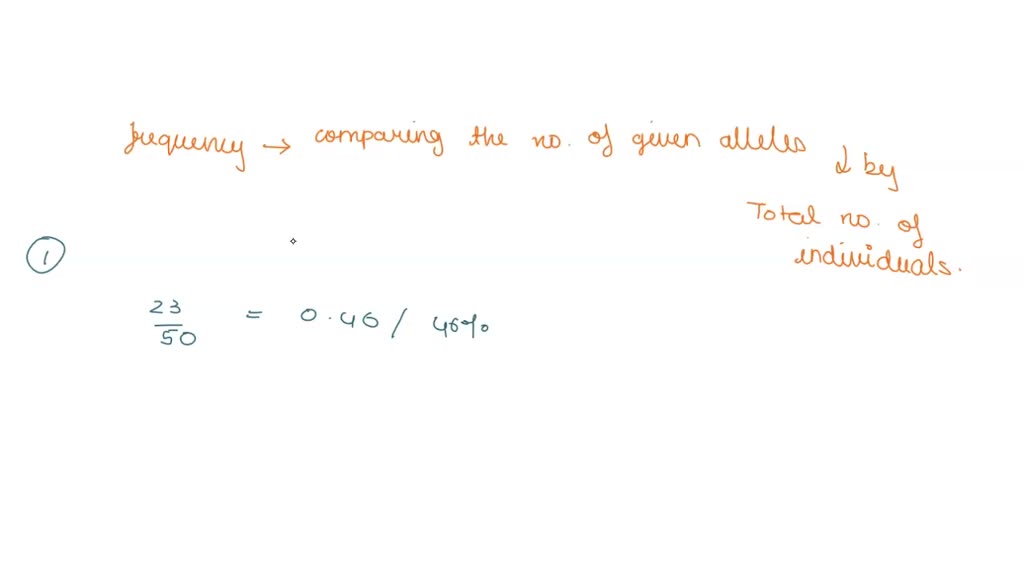 frequency → comparing the no. of given alleles
& by
Total no. of
individuals.
1
23
50
= 0.46 / 46%